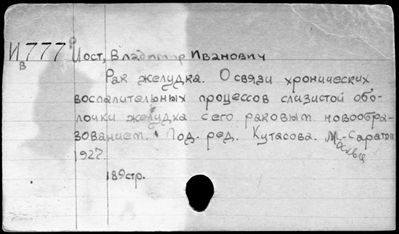 И777р
в
Иост, Владимир Иванович
Рак желудка. О связи хронических
воспалительных процессов слизистой обо-
лочки желудка с его раковым новообра-
зованием. Под. ред. Кутасова. М.-Саратов
осква
1927.
189стр.